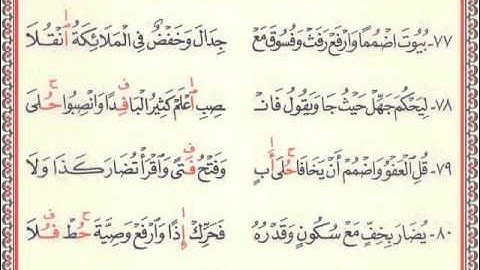 ٧٧- بُيُوتَ اضْمُمًا وَارْفَعْ رَفَثَ وَفُسُوقَ مَعْ جِدَالَ وَخَفْضٌ فِي الْمَلَائِكَةُ انْقُلَا
٧٨- لِيَحْكُمَ جَهِّلْ حَيْثُ جَا وَيَقُولُ فَانْـ ـصِبِ اعْلَمْ كَثِيرُ الْبَا فِدًا وَانْصِبُوا حُلَى
٧٩- قُلِ الْعَفْوُ وَاضْمُمْ أَنْ يَخَافَا حُلَى أَبٍ وَفَتْحُ فَتًى وَاقْرَأْ تُضَارَ كَذَا وَلَا
٨٠- يُضَارَ بِخِفٍّ مَعْ سُكُونٍ وَقَدْرُهُ فَحَرِّكْ إِذًا وَارْفَعْ وَصِيَّةَ حُطْ فُلَا